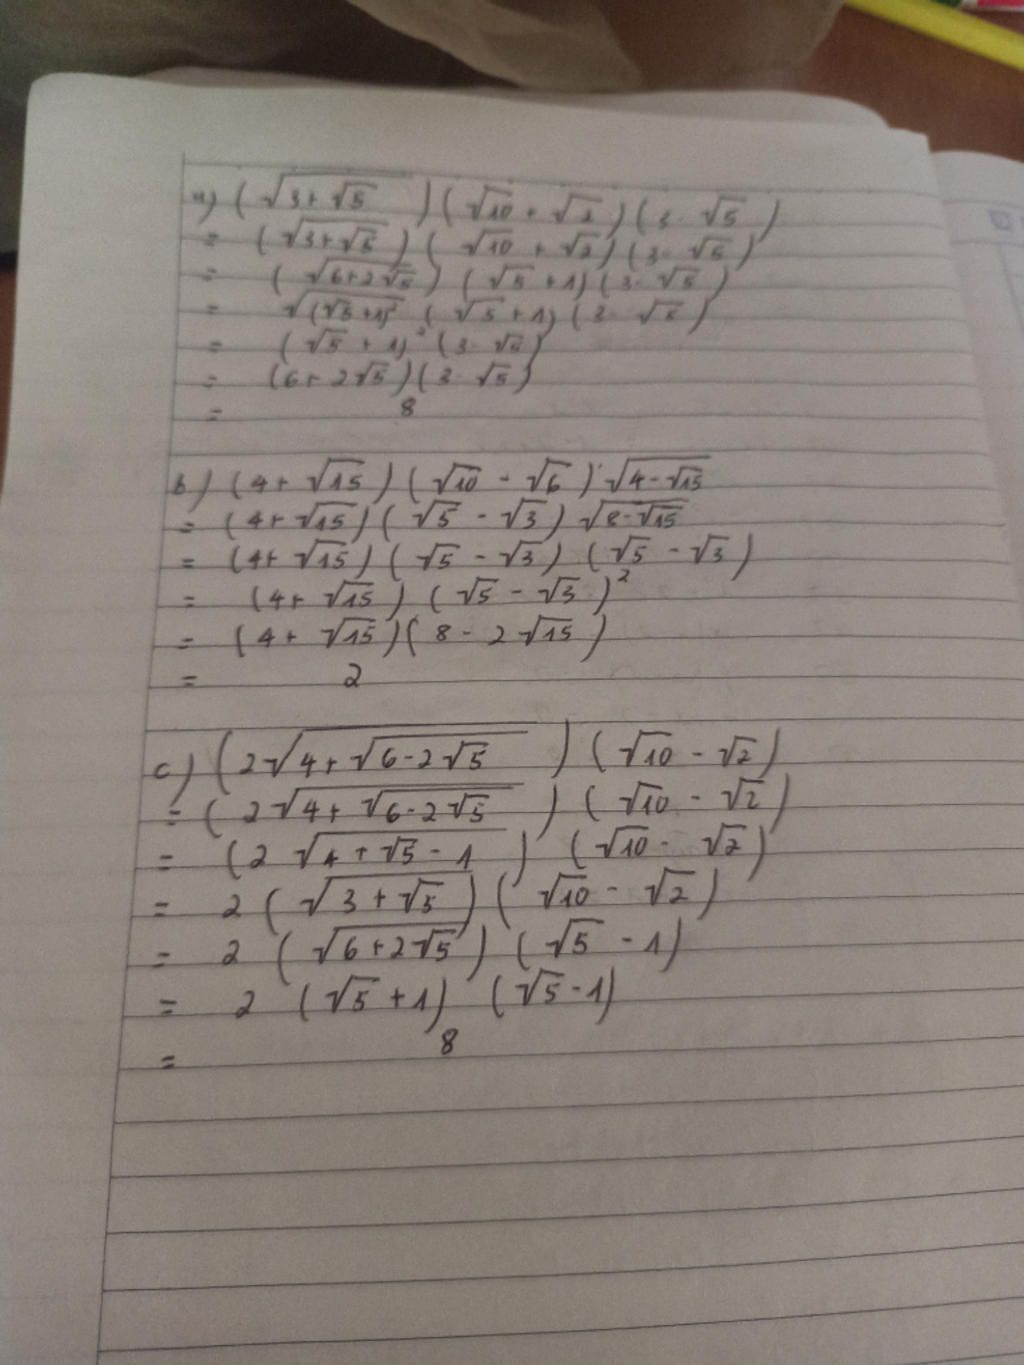 a) (√(3+√5)) (√10 + √2) (3 - √5)
= (√(3+√5)) (√10 + √2) (3 - √5)
= (√(6+2√5)) (√5 + 1) (3 - √5)
= √((√5+1)²) (√5 + 1) (3 - √5)
= (√5 + 1)² (3 - √5)
= (6 + 2√5) (3 - √5)
= 8
b) (4 + √15) (√10 - √6) · √(4-√15)
= (4 + √15) (√5 - √3) √(8-√15)
= (4 + √15) (√5 - √3) (√5 - √3)
= (4 + √15) (√5 - √3)²
= (4 + √15) (8 - 2√15)
= 2
c) (2√(4+√(6-2√5))) (√10 - √2)
= (2√(4+√(6-2√5))) (√10 - √2)
= (2√(4+√5-1)) (√10 - √2)
= 2 (√(3+√5)) (√10 - √2)
= 2 (√(6+2√5)) (√5 - 1)
= 2 (√5 + 1) (√5 - 1)
= 8